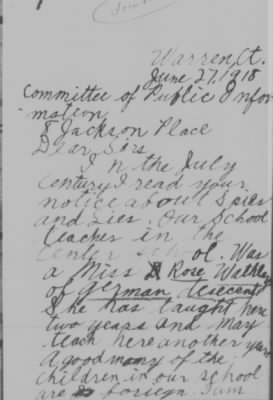 Warren, Ct.
June 27, 1918
Committee of Public Infor
mation
8 Jackson Place
Dear Sirs
In the July
Century I read your
notice about Spies
and Lies. Our School
teacher in the
Center School. Was
a Miss Rose
of German desecent
She has taught here
two years and may
teach here another year
A good many of the
children in our school
are foreign I am